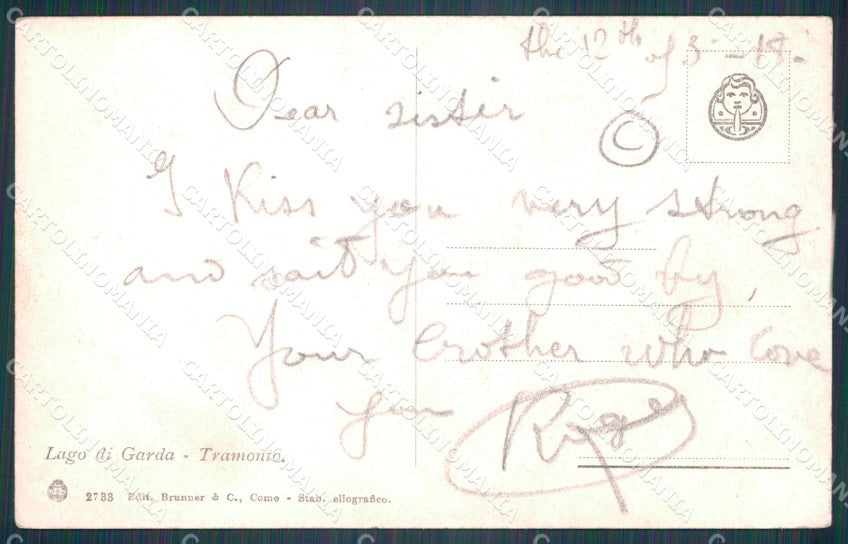 the 12th of 5 - 18.
Dear sister
I Kiss you very strong
and said you good by,
Your brother who love
you Roger
Lago di Garda - Tramonto.
2788 Edit. Brunner & C., Como - Stab. eliografico.
CARTOLINOMANIA